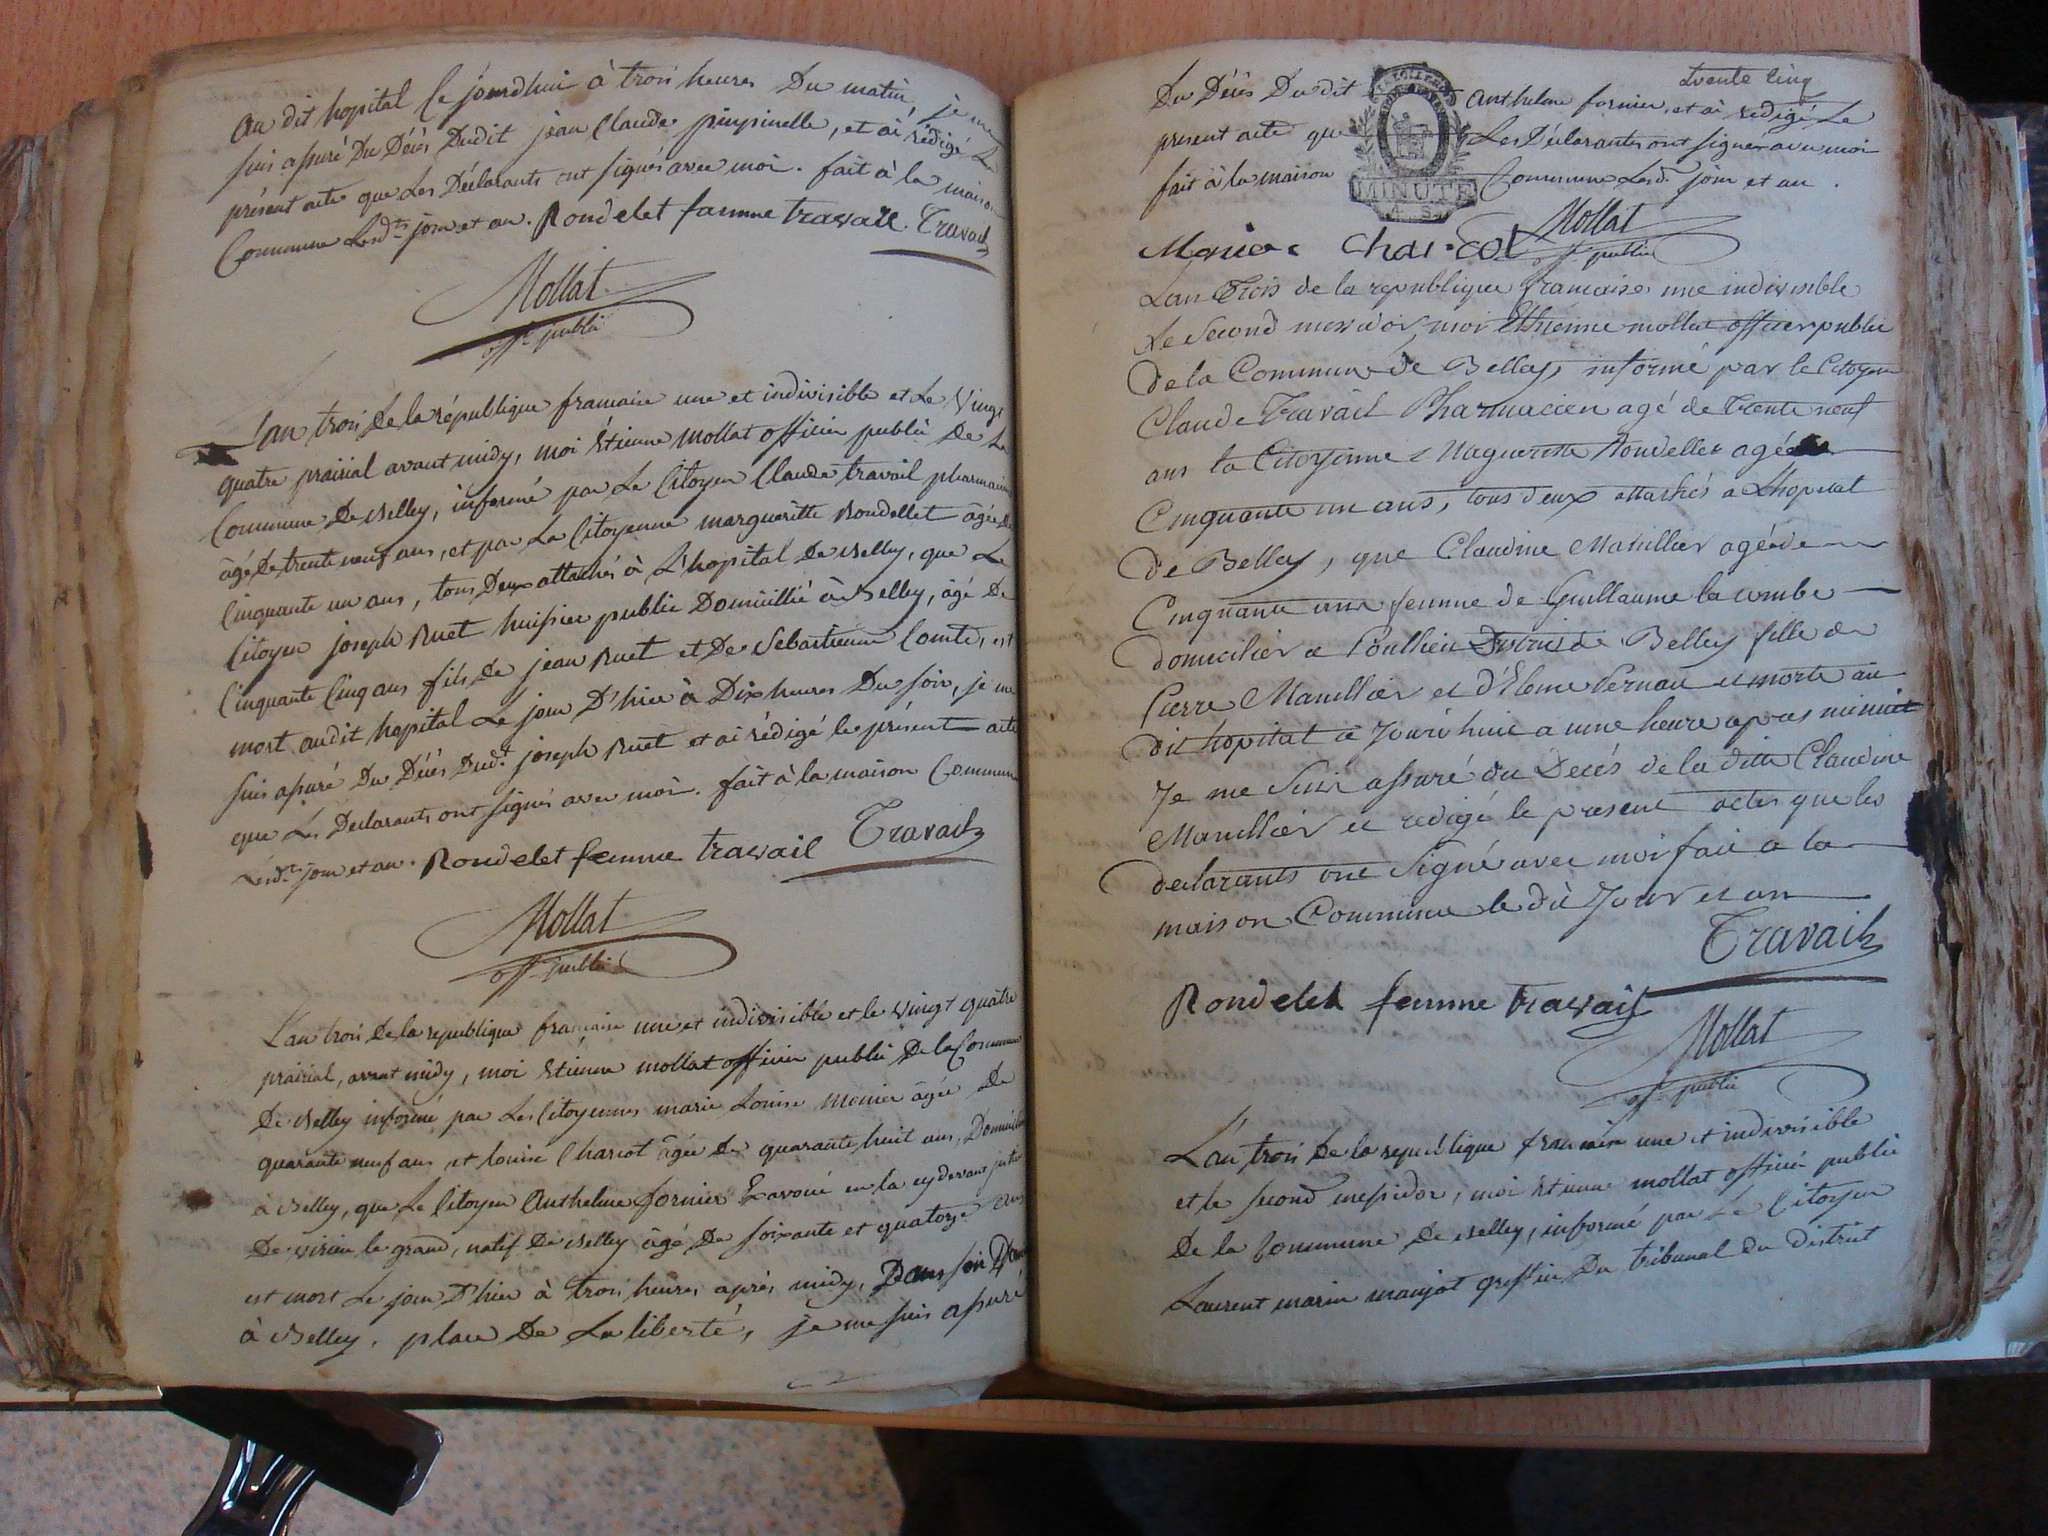 au dit hopital ce jourdhui à trois heures Du matin, je me
suis assuré Du Décès Dudit jean Claude pinpinelle, et ai rédigé Le
présent acte que Les Déclarants ont signés avec moi. fait à la maison
Commune Lesd.ts jour et an. Rondelet famme travail. Travail
Mollat
off.r public
L'an trois De la république francaise une et indivisible et Le vingt
quatre prairial avant midy, moi Etienne Mollat officier public De La
Commune De Belley, informé par Le Citoyen Claude travail pharmacien
âgé De trente neuf ans, et par La Citoyenne margueritte Rondellet âgée De
Cinquante un ans, tous Deux attachés à L'hopital De Belley, que Le
Citoyen joseph Ruet huissier public Domicillié à Belley, âgé De
Cinquante Cinq ans fils De jean Ruet et De Sébastienne Comte, est
mort audit hopital Le jour D'hier à Dix heures Du soir, je me
suis assuré Du Décès Dud.t joseph Ruet et ai rédigé le présent acte
que Les Déclarants ont signés avec moi. fait à la maison Commune
Lesd.ts jour et an. Rondelet femme travail Travail
Mollat
off.r public
L'an trois De la republique francaise une et indivisible et le vingt quatre
prairial, avant midy, moi Etienne mollat officier public De la Commune
De Belley informé par Les Citoyennes marie Louise Monier âgée De
quarante neuf ans et louise Charcot âgée De quarante huit ans, Domiciliées
à Belley, que Le Citoyen Anthelme fornier Exavoué en la cydevant justice
De virieu le grand, natif De Belley âgé De soixante et quatorze ans
est mort Le jour D'hier à trois heures après midy, Dans son
à Belley. place De La liberté, je me suis assuré
trente cinq
Du Décès Dudit Anthelme fornier, et ai redigé Le
present acte que Les Déclarants ont signés avec moi
MINUTE
fait à la maison Commune Lesd.ts jour et an.
Monier Charcot Mollat
off.r public
Lan Trois de la republique francaise une indivisible
Le Second mesidor, moi Ethienne mollat officier public
de la Commune de Belley, informé par le Citoyen
Claude Travail Pharmacien agé de Trente neuf
ans la Citoyenne Magueritte Rondellet agée
Cinquante un ans, tous deux attachés a Lhopital
de Belley, que Claudine Manillier agée de
Cinquante ans femme de Guillaume la combe
domicilier a Coullieu District de Belley fille de
Pierre Manillier et d'Elene Vernau et morte au
dit hopital a Jourd huit a une heure apres minuit
Je me Suis assuré du Decés de la ditte Claudine
Manillier et redigé le present actes que les
declarants ont Signé avec moi fait a la
maison Commune le dit Jour et an
Travail
Rondelet femme travail
Mollat
off.r public
L'an trois De la republique francaise une et indivisible
et le second messidor, moi Etienne mollat officier public
De la Commune De Belley, informé par Le Citoyen
Laurent marin maujot greffier Du tribunal Du District